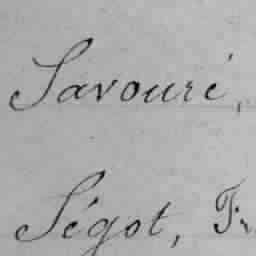 Savouré,
Ségot, Fr